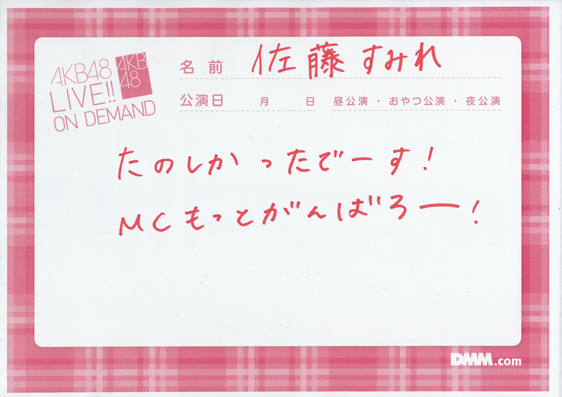 AKB48
LIVE!!
ON DEMAND
AKB
48
名前 佐藤すみれ
公演日 月 日 昼公演・おやつ公演・夜公演
たのしかったでーす!
MCもっとがんばろー!
DMM.com